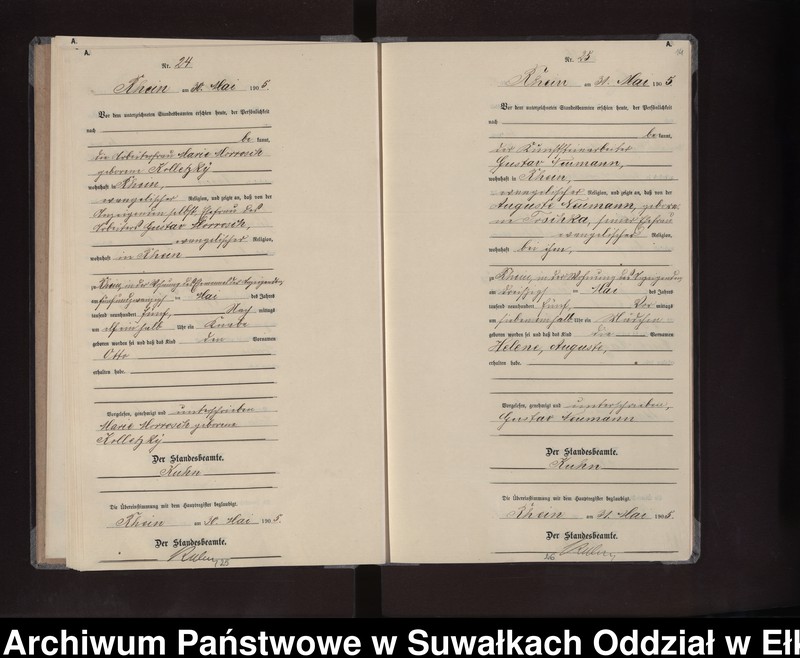 A.
A.
Nr. 24.
Rhein am 30. Mai 1905.
Vor dem unterzeichneten Standesbeamten erschien heute, der Persönlichkeit
nach
be kannt,
die Arbeiterfrau Marie
geborene Kolletzky
wohnhaft in Rhein,
evangelischer Religion, und zeigte an, daß von der
Ehefrau des
Arbeiters Gustav
evangelischer Religion,
wohnhaft in Rhein
zu Rhein, in der Wohnung
am fünfundzwanzig ten Mai des Jahres
tausend neunhundert fünf, Nach mittags
um halb Uhr ein Knabe
geboren worden sei und daß das Kind den Vornamen
Otto
erhalten habe.
Vorgelesen, genehmigt und unterschrieben
Marie geborene
Kolletzky
Der Standesbeamte.
Kuhn
Die Übereinstimmung mit dem Hauptregister beglaubigt.
Rhein am 30. Mai 1905.
Der Standesbeamte.
Kuhn
125
A.
Nr. 25
Rhein am 31. Mai 1905.
Vor dem unterzeichneten Standesbeamten erschien heute, der Persönlichkeit
nach
be kannt,
der
Gustav Neumann,
wohnhaft in Rhein,
evangelischer Religion, und zeigte an, daß von der
Auguste Neumann, gebore
ne seiner Ehefrau
evangelischer Religion,
wohnhaft bei ihm,
zu Rhein, in der Wohnung des Anzeigenden
am dreißigst en Mai des Jahres
tausend neunhundert fünf, Vor mittags
um halb Uhr ein Mädchen
geboren worden sei und daß das Kind die Vornamen
Helene, Auguste,
erhalten habe.
Vorgelesen, genehmigt und unterschrieben,
Gustav Neumann
Der Standesbeamte.
Kuhn
Die Übereinstimmung mit dem Hauptregister beglaubigt.
Rhein am 31. Mai 1905.
Der Standesbeamte.
Kuhn
Archiwum Państwowe w Suwałkach Oddział w Ełk